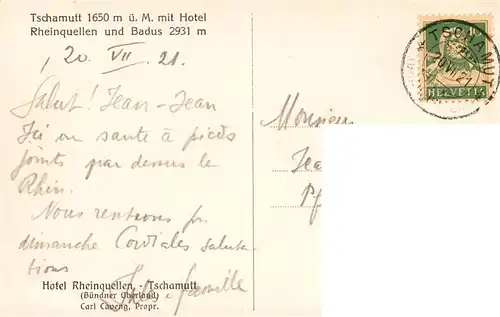 Tschamutt 1650 m ü. M. mit Hotel
Rheinquellen und Badus 2931 m
20. VII. 21.
Salut! Jean-Jean
Ici on saute à pieds
joints par dessus le
Rhin.
Nous rentrons pr.
dimanche Cordiales saluta-
tions
famille
Hotel Rheinquellen, - Tschamutt
(Bündner Oberland)
Carl Caveng, Propr.
TSCHAMUTT
HELVETIA
Monsieur